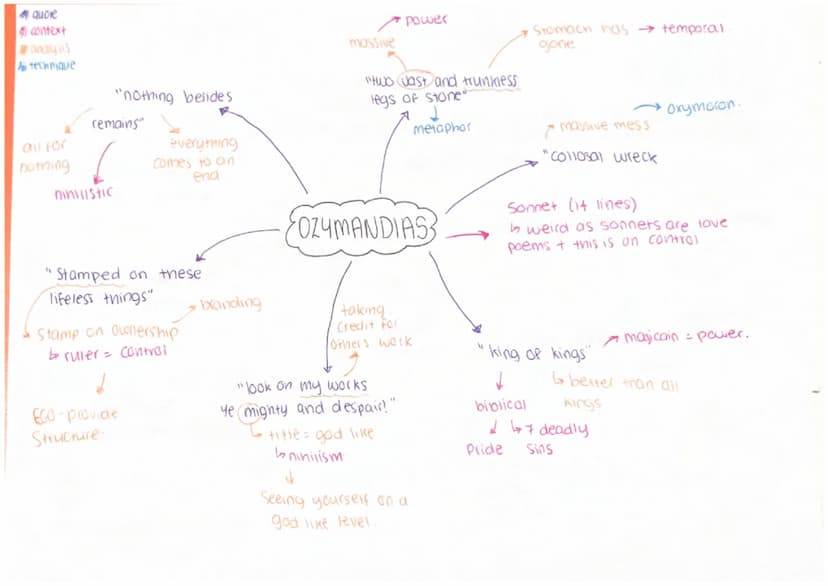 quote
context
analysis
↳ technique
"nothing besides
remains"
all for
nothing
everything
comes to an
end
nihilistic
power
massive
"two vast and trunkless
legs of stone"
metaphor
Stomach has → temporal
gone
→ oxymoron.
massive mess
"collosal wreck
OZYMANDIAS
Sonnet (14 lines)
↳ weird as sonnets are love
poems + this is on control
"Stamped on these
lifeless things"
branding
Stamp on ownership
↳ ruler = control
EGO - provide
structure
taking
credit for
others work
"look on my works
Ye mighty and despair!"
↳ title = god like
↳ nihilism
Seeing yourself on a
god like level.
"king of kings"
= power.
↳ better than all
kings
biblical
↳ 7 deadly
sins
Pride